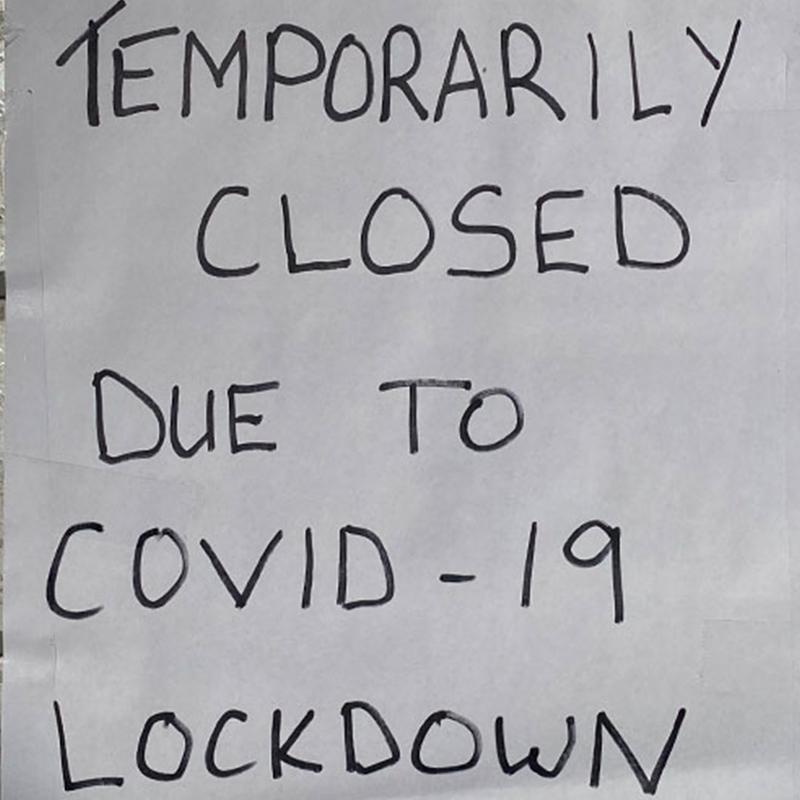 TEMPORARILY
CLOSED
DUE TO
COVID-19
LOCKDOWN